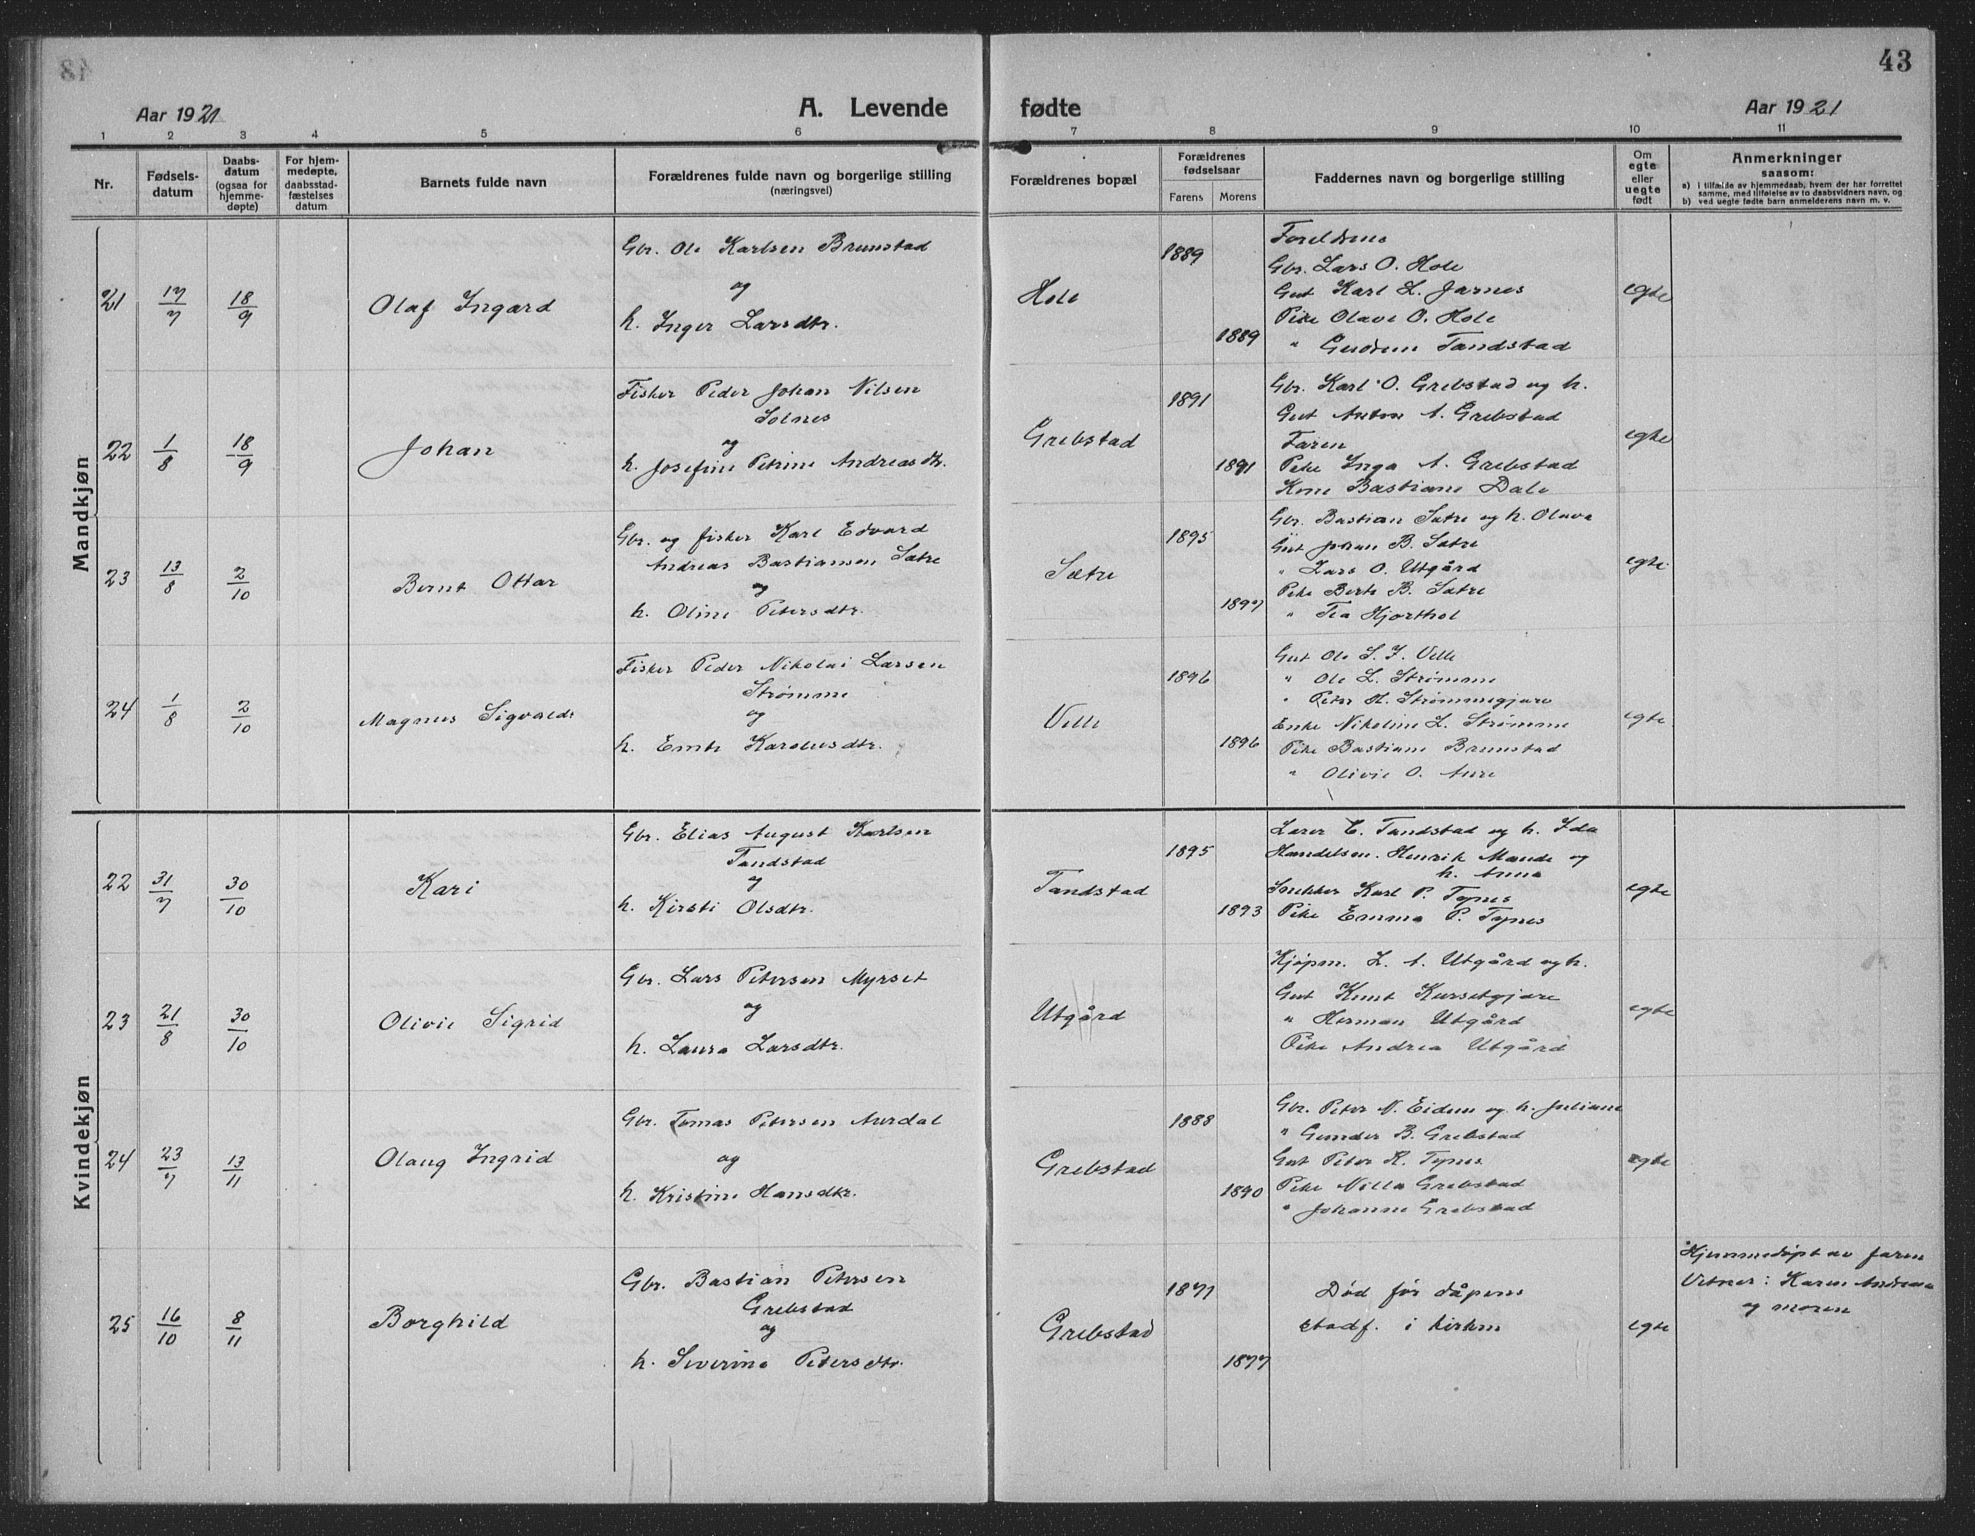 43
Aar 1921
A. Levende fødte
Aar 1921
1 2 3 4 5 6 7 8 9 10 11
Nr.
Fødsels-
datum
Daabs-
datum
(ogsaa for
hjemme-
døpte)
For hjem-
medøpte,
daabsstad-
fæstelses
datum
Barnets fulde navn
Forældrenes fulde navn og borgerlige stilling
(næringsvei)
Forældrenes bopæl
Forældrenes
fødselsaar
Farens Morens
Faddernes navn og borgerlige stilling
Om
egte
eller
uegte
født
Anmerkninger
saasom:
a) i tilfælde av hjemmedaab, hvem der har forrettet
samme, med tilføielse av to daabsvidners navn, og
b) ved uegte fødte barn anmelderens navn m. v.
Mandkjøn
21 17/7 18/9
Olaf Ingard
Gbr. Ole Karlsen Brunstad
og
h. Inger Larsdtr.
Hole
1889
1889
Foreldrene
Gbr. Lars O. Hole
Gut Karl L. Jarnes
Pike Olave O. Hole
" Gudrun Tandstad
egte
22 1/8 18/9
Johan
Fisker Peder Johan Nilsen
Solnes
og
h. Josefine Petrine Andreasdtr.
Grebstad
1891
1891
Gbr. Karl O. Grebstad og h.
Gut Anton A. Grebstad
Faren
Pike Inga A. Grebstad
Kone Bastiane Dale
egte
23 13/8 2/10
Bernt Ottar
Gbr. og fisker Karl Edvard
Andreas Bastiansen Sætre
og
h. Oline Petersdtr.
Sætre
1895
1897
Gbr. Bastian Sætre og h. Olava
Gut Johan B. Sætre
" Lars O. Utgård
Pike Berte B. Sætre
" Tea Hjorthol
egte
24 1/8 2/10
Magnus Sigvald
Fisker Peder Nikolai Larsen
Strømme
og
h. Emte Karolusdtr.
Velle
1896
1896
Gut Ole S. J. Velle
" Ole L. Strømme
" Peter H. Strømmegjære
Enke Nikoline L. Strømme
Pike Bastiane Brunstad
" Olivie O. Aure
egte
Kvindekjøn
22 31/7 30/10
Kari
Gbr. Elias August Karlsen
Tandstad
og
h. Kirsti Olsdtr.
Tandstad
1895
1893
Lærer E. Tandstad og h. Ida
Handelsm. Henrik Mande og
h. Anna
Snekker Karl P. Tynes
Pike Emma P. Tynes
egte
23 21/8 30/10
Olivie Sigrid
Gbr. Lars Petersen Myrset
og
h. Laura Larsdtr.
Utgård
Kjøpm. L. A. Utgård og h.
Gut Knut Kursetgjære
" Herman Utgård
Pike Andrea Utgård
egte
24 23/7 13/11
Olaug Ingrid
Gbr. Tomas Petersen Aurdal
og
h. Kristine Hansdtr.
Grebstad
1888
1890
Gbr. Peter N. Eidem og h. Juliane
" Gunder B. Grebstad
Gut Peter K. Tynes
Pike Nilla Grebstad
" Johanne Grebstad
egte
25 16/10 8/11
Borghild
Gbr. Bastian Petersen
Grebstad
og
h. Severine Petersdtr.
Grebstad
1871
1877
Død før dåpens
stadf. i kirken
egte
Hjemmedøpt av faren
Vitner: Karen Andrea
og moren